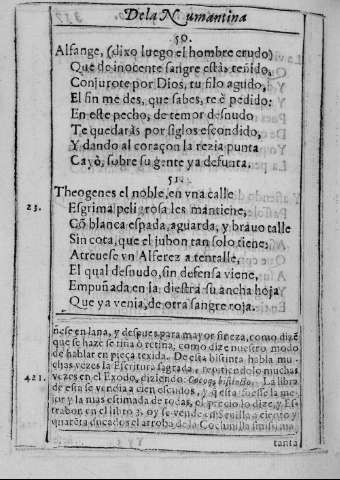 De la Numantina
50.
Alfange, (dixo luego el hombre crudo)
Que de inocente sangre estàs teñido,
Conjurote por Dios, tu filo agudo,
El fin me des, que sabes, te è pedido:
En este pecho, de temor desnudo
Te quedaràs por siglos escondido,
Y dando al coraçon la rezia punta
Cayò, sobre su gente ya defunta.
51.
Theogenes el noble, en vna calle
Esgrima peligrosa les mantiene,
23.
Cõ blanca espada, aguarda, y brauo talle
Sin cota, que el jubon tan solo tiene;
Atreuese vn Alferez a tentalle,
El qual desnudo, sin defensa viene,
Empuñada en la diestra su ancha hoja
Que ya venia, de otra sangre roja.
ñese en lana, y despues para mayor fineza, como dizẽ
que se haze se tiña o retina, como dize nuestro modo
de hablar en pieça texida. De esta bistinta habla mu
chas vezes la Escritura sagrada, repitiendolo muchas
421.
vezes en el Exodo, diziendo: Cocco, bistincto. La libra
de esta se vendia a cien escudos, y q̃ esta fuesse la me
jor y la mas estimada de todas, el precio lo dize, y Es
trabon en el libro 3. oy se vende en Seuilla a ciento y
quarẽta ducados el arroba de la Cochinilla
tanta